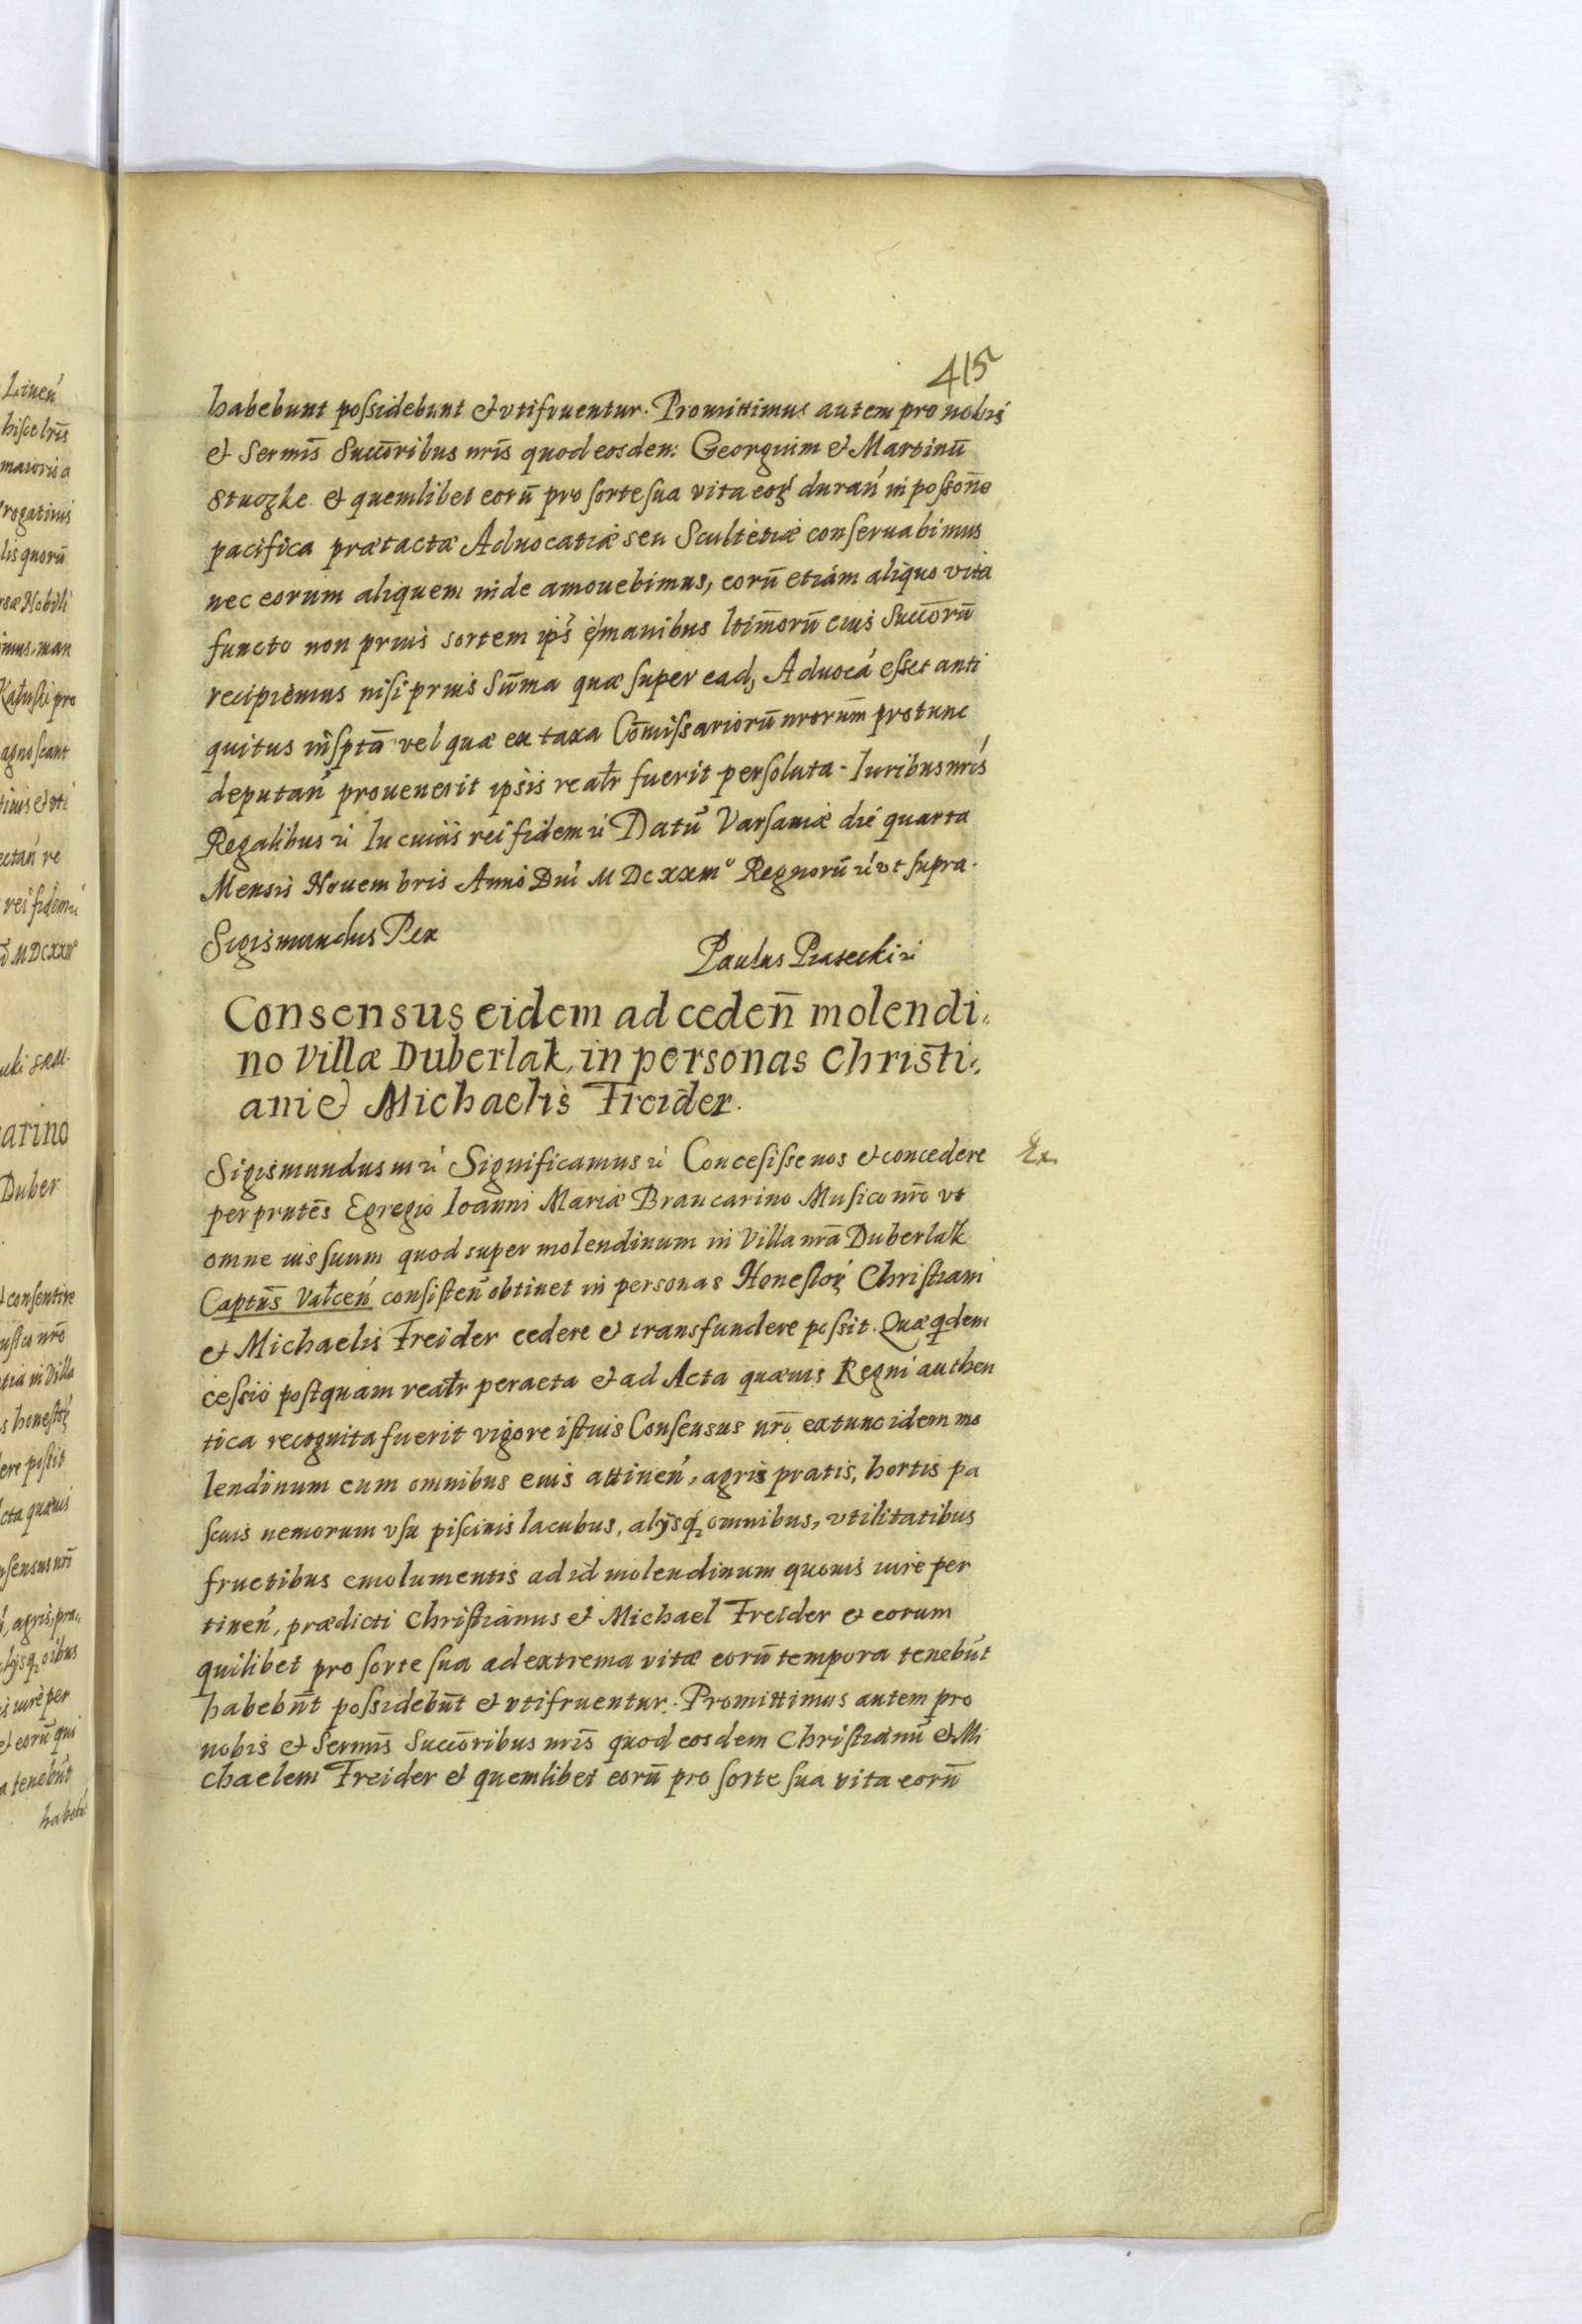 415
habebunt possidebunt et vtifruentur. Promittimus autem pro nobis
et Sermis̄ Succōribus nris̄ quod eosdem Georgium et Martinū
Stuozke et quemlibet eorū pro sorte sua vita eorȝ durań in possōne
pacifica prætactæ Aduocatiæ seu Scultetiæ conseruabimus
nec eorum aliquem inde amouebimus, eorū etiam aliquo vita
functo non prius sortem ips̄ è manibus ltimorū eius Succorū
recipiemus nisi prius Sum̄a quæ super ead, Aduocá esset anti
quitus insptā vel quæ ex taxa Com̄issariorū nrorum̄ protunc
deputań prouenerit ipsis realr fuerit persoluta. Iuribus nris
Regalibus ꝛc In cuius rei fidem ꝛc Datū Varsauiæ die quarta
Mensis Nouembris Anno Dni M DC XXIIIº Regnorū ꝛc vt supra.
Sigismundus Rex
Paulus Piasecki ꝛc
Consensus eidem ad ceden̄ molendi,
no Villæ Duberlak, in personas Christi,
ani et Michaelis Freider.
Sigismundus III ꝛc Significamus ꝛc Concesisse nos et concedere
Ex
per pnten̄s Egregio Ioanni Mariæ Brancarino Musico nrō vt
omne ius suum quod super molendinum in Villa nrā Duberlak
Captūs Valceń consisteń obtinet in personas Honestorȝ Christiani
et Michaelis Freider cedere et transfundere possit. Quæ qdem
cessio postquam realr peracta et ad Acta quæuis Regni authen
tica recognita fuerit vigore istius Consensus nrī extunc idem mo
lendinum cum omnibus eius attineń, agris pratis, hortis pa
scuis nemorum vsu piscinis lacubus, alijsq, omnibus, vtilitatibus
fructibus emolumentis ad id molendinum quouis iure per
tineń, prædicti Christianus et Michael Freider et eorum
quilibet pro sorte sua ad extrema vitæ eorū tempora tenebūt
habebūt possidebūt et vtifruentur. Promittimus autem pro
nobis et Sermis̄ Succōribus nris̄ quod eosdem Christianū et Mi
chaelem Freider et quemlibet eorū pro sorte sua vita eorū